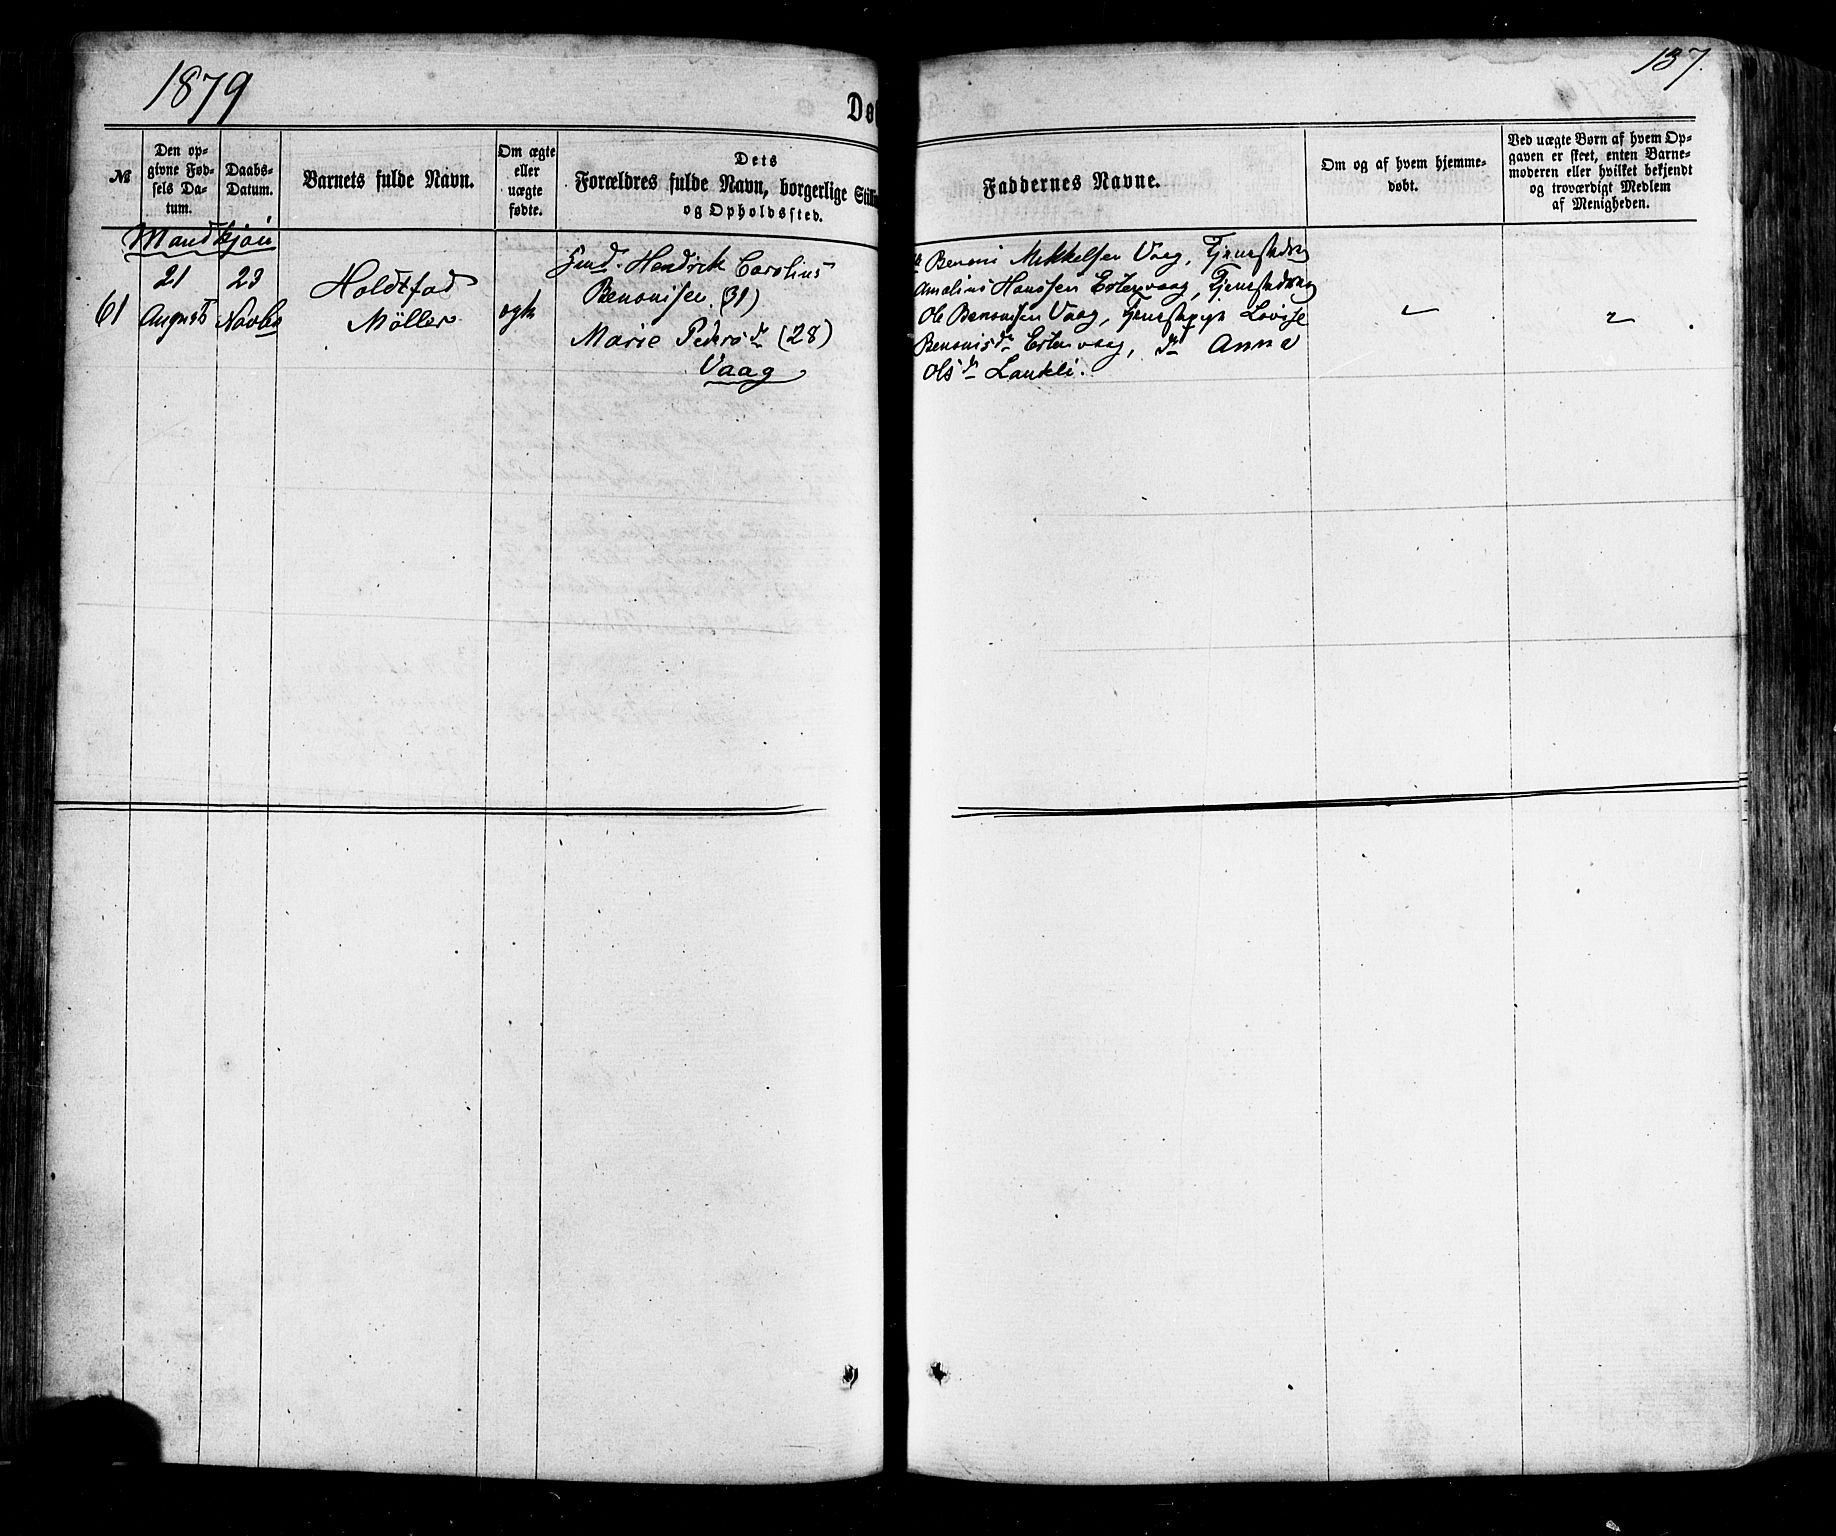 1879
137.
Døb
№
Den opgivne Fødsels Datum.
Daabs-Datum.
Barnets fulde Navn.
Om ægte eller uægte fødte.
Dets Forældres fulde Navn, borgerlige Still
og Opholdssted.
Faddernes Navne.
Om og af hvem hjemmedøbt.
Ved uægte Børn af hvem Opgaven er skeet, enten Barnemoderen eller hvilket bekjendt og troværdigt Medlem af Menigheden.
Mandkjøn
61
21 August
23 Novbr
Holdtfad
Möller
ægte
Hendrik Carolius
Benonisen (31)
Marie Pedersdr (28)
Vaag
Benoni Mikkelsen Vaag, Tjenestedreng
Amalius Hanssen Estenvaag, Tjenestedreng
Ole Benonisen Vaag, Tjenestepige Lovise
Benonisdr Estenvaag, do Anna
Olsdr Lankli.